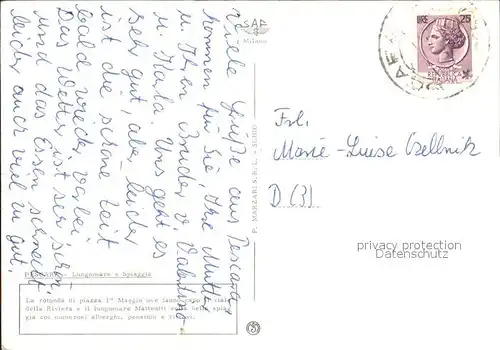 Viele Grüße aus Pescara,
kommen für Sie, Ihre Mutter
u. Ihren Bruder v. Valentino
u. Karla. Uns geht es
sehr gut, aber leider
ist die schöne Zeit
bald wieder vorbei.
Das Wetter ist sehr schön
und das Essen schmeckt
leider auch viel zu gut.
SAF
Milano
LIRE 25
Frl.
Marie-Luise
D (3).
privacy protection
Datenschutz
P. MARZARI S.R.L. - SCHIO
PESCARA - Lungomare e Spiaggia
La rotonda di piazza 1° Maggio ove fanno capo il viale
della Riviera e il lungomare Matteotti sulla bella spiag-
gia coi numerosi alberghi, pensioni e ritrovi.